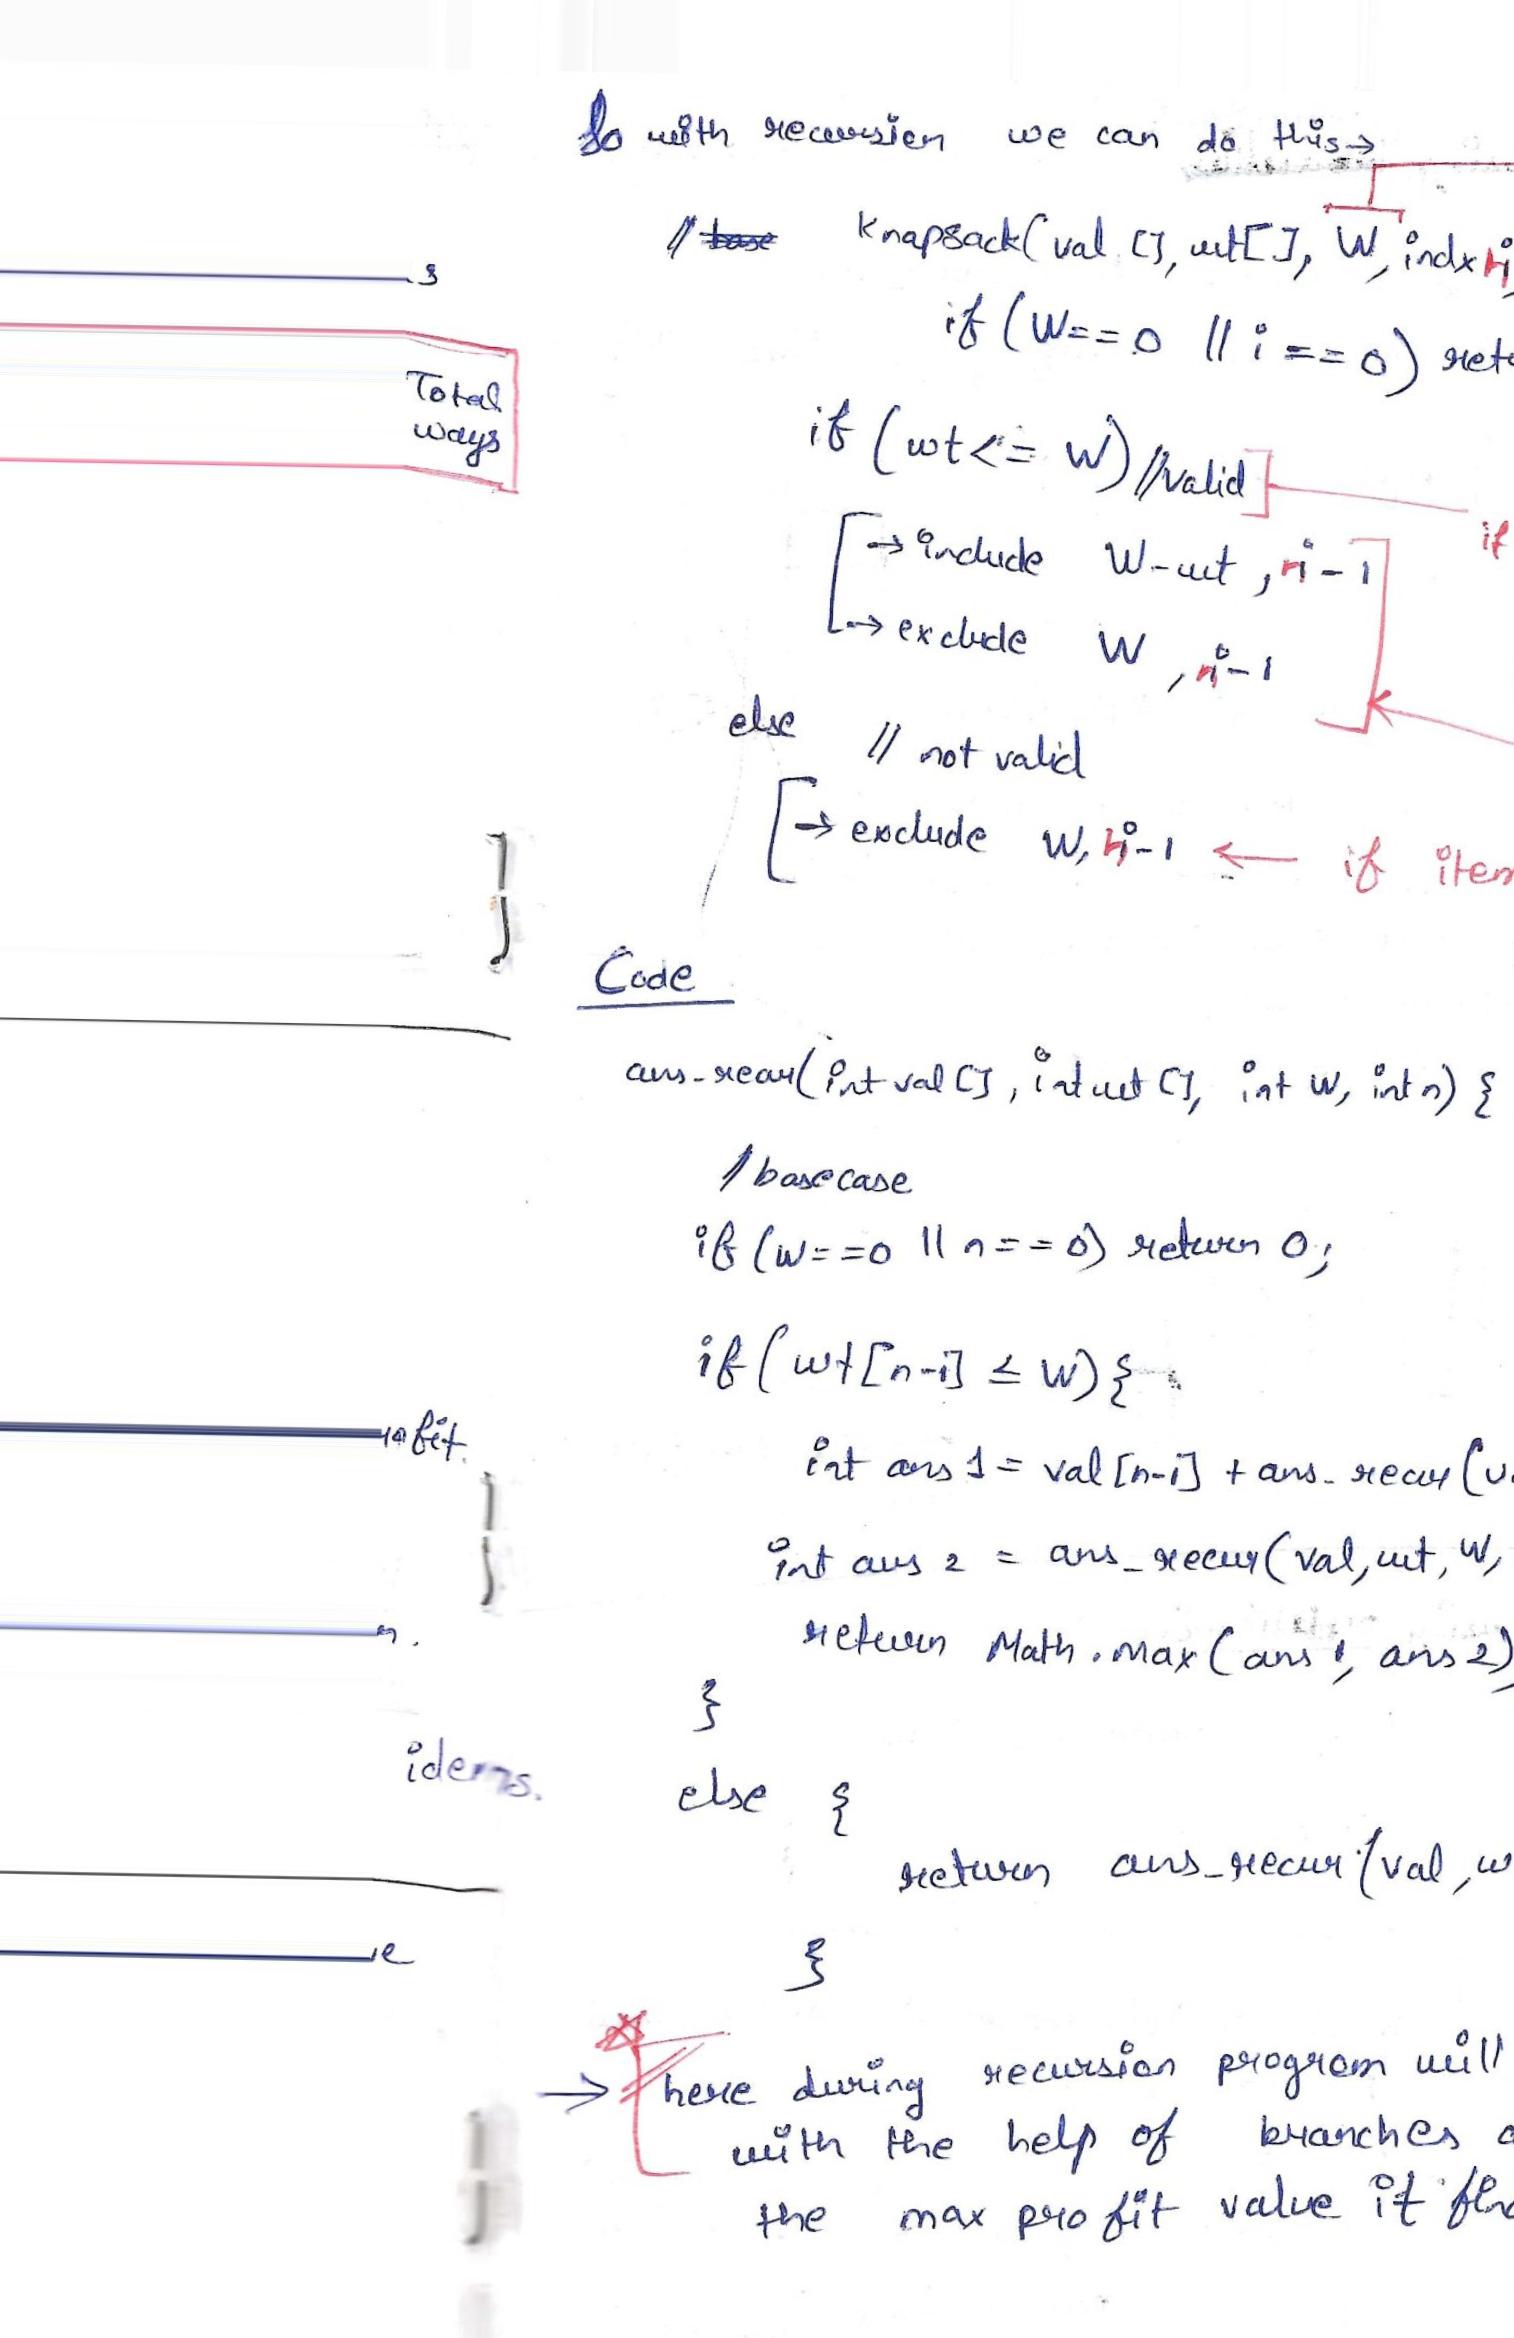 So with recursion we can do this→
// base Knapsack(val [], wt[], W, indx n
if (W==0 || i==0) retu
s
Total
ways
if (wt<= W) //valid
if
→ include W-wt, n-1
→ exclude W, n-1
else // not valid
→ exclude W, n-1 ← if item
Code
ans-recur(int val[], int wt[], int W, int n) {
//base case
if (W==0 || n==0) return 0;
if (wt[n-i] ≤ W) {
ofit.
int ans1 = val[n-i] + ans-recur(v
int ans 2 = ans_recur(val, wt, W,
return Math.max(ans1, ans2)
n.
}
idems.
else {
return ans_recur(val, w
}
e
→ here during recursion program will
with the help of branches a
the max profit value it fin